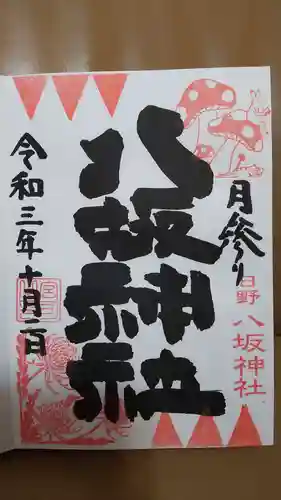 月参り
日野 八坂神社
八坂神社
令和三年十月二日